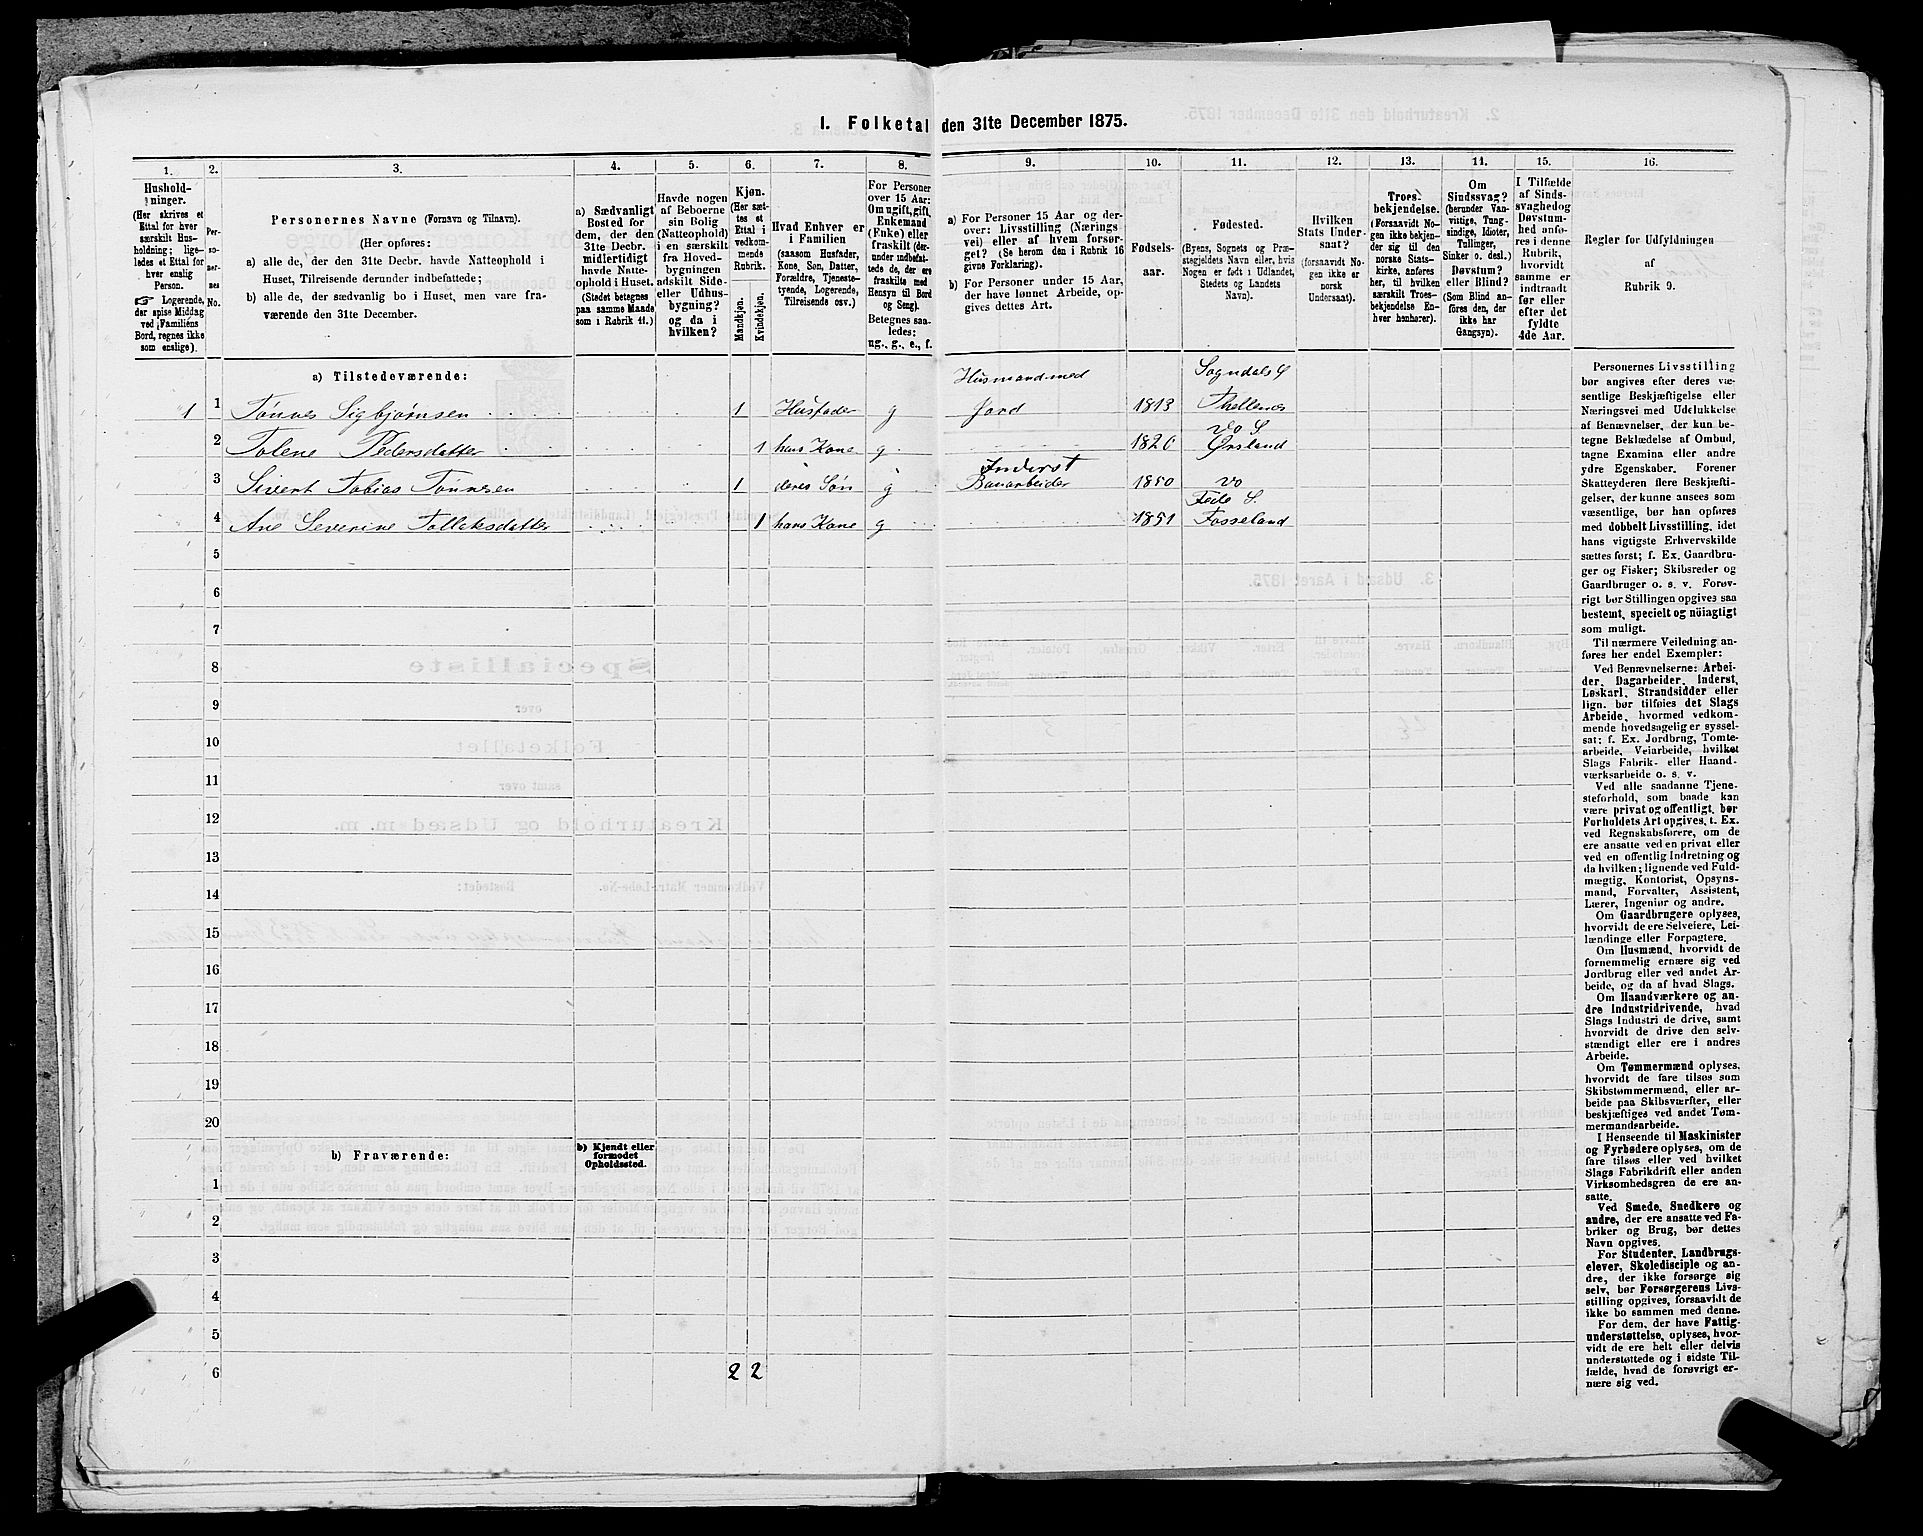 I. Folketal den 31te December 1875.
1. 2. 3. 4. 5. 6. 7. 8. 9. 10. 11. 12. 13. 14. 15. 16.
Hushold-
ninger.
(Her skrives et
Ettal for hver
særskilt Hus-
holdning; lige-
ledes et Ettal for
hver enslig
Person.
☞ Logerende,
der spise Middag
ved Familiens
Bord, regnes ikke
som enslige).
Per-
so-
ner-
nes
No.
Personernes Navne (Fornavn og Tilnavn).
(Her opføres:
a) alle de, der den 31te Decbr. havde Natteophold i
Huset, Tilreisende derunder indbefattede;
b) alle de, der sædvanlig bo i Huset, men vare fra-
værende den 31te December.
a) Sædvanligt
Bosted for
dem, der den
31te Decbr.
midlertidigt
havde Natte-
ophold i Huset.
(Stedet betegnes
paa samme Maade
som i Rubrik 11.)
Havde nogen
af Beboerne
sin Bolig
(Natteophold)
i en særskilt
fra Hoved-
bygningen
adskilt Side-
eller Udhus-
bygning?
og da i
hvilken?
Kjøn.
(Her sæt-
tes et
Ettal i
vedkom-
mende
Rubrik.
Mandkjøn.
Kvindekjøn.
Hvad Enhver er
i Familien
(saasom Husfader,
Kone, Søn, Datter,
Forældre, Tjeneste-
tyende, Logerende,
Tilreisende osv.)
For Personer
over 15 Aar:
Om ugift, gift,
Enkemand
(Enke) eller
fraskilt (der-
under indbefat-
tede de, der ere
fraskilte med
Hensyn til Bord
og Seng).
Betegnes saa-
ledes:
ug., g., e., f.
a) For Personer 15 Aar og der-
over: Livsstilling (Nærings
vei) eller af hvem forsør-
get? (Se herom den i Rubrik 16
givne Forklaring).
b) For Personer under 15 Aar,
der have lønnet Arbeide, op-
gives dettes Art.
Fødsels-
aar.
Fødested.
(Byens, Sognets og Præ-
stegjeldets Navn eller, hvis
Nogen er født i Udlandet,
Stedets og Landets
Navn).
Hvilken
Stats Under-
saat?
(forsaavidt No-
gen ikke er
norsk
Undersaat).
Troes-
bekjendelse.
(Forsaavidt No-
gen ikke bekjen-
der sig til den
norske Stats-
kirke, anføres
her, til hvilken
særskilt Troes-
bekjendelse En-
hver henhører).
Om
Sindssvag?
(herunder Van-
vittige, Tung-
sindige, Idioter,
Tullinger,
Sinker o. desl.)
Døvstum?
eller Blind?
(Som Blind an-
føres den, der
ikke har
Gangsyn).
I Tilfælde
af Sinds-
svaghed og
Døvstum-
hed anfø-
res i denne
Rubrik,
hvorvidt
samme er
indtraadt
før eller
efter det
fyldte
4de Aar.
Regler for Udfyldningen
af
Rubrik 9.
a) Tilstedeværende:
1 1 Tønnes Sigbjørnsen 1 Husfader g Husmand med Jord 1813 Sogndals S Thellenes
2 Tolene Pedersdatter 1 hans Kone g 1820 do S Ørsland
3 Sivert Tobias Tønnesen 1 deres Søn g Inderst Banarbeider 1850 do
4 Ane Severine Tollaksdatter 1 hans Kone g 1851 Fede S. Fosseland
5
6
7
8
9
10
11
12
13
14
15
16
17
18
19
20
b) Fraværende: b) Kjendt eller
formodet
Opholdssted.
1
2
3
4
5
6 2 2
Personernes Livsstilling
bør angives efter deres væ-
sentlige Beskjæftigelse eller
Næringsvei med Udelukkelse
af Benævnelser, der kun be-
tegne Beklædelse af Ombud,
tagne Examina eller andre
ydre Egenskaber. Forener
Skatteyderen flere Beskjæfti-
gelser, der kunne ansees som
væsentlige, bør han opføres
med dobbelt Livsstilling, idet
hans vigtigste Erhvervskilde
sættes først; f. Ex. Gaardbru-
ger og Fisker; Skibsreder og
Gaardbruger o. s. v. Forøv-
rigt bør Stillingen opgives saa
bestemt, specielt og nöiagtigt
som muligt.
Til nærmere Veiledning an-
føres her endel Exempler:
Ved Benævnelserne: Arbei-
der, Dagarbeider, Inderst,
Løskarl, Strandsidder eller
lign. bør tilføies det Slags
Arbeide, hvormed vedkom-
mende hovedsagelig er syssel-
sat; f. Ex. Jordbrug, Tomte-
arbeide, Veiarbeide, hvilket
Slags Fabrik- eller Haand-
værksarbeide o. s. v.
Ved alle saadanne Tjene-
steforhold, som baade kan
være privat og offentligt, bør
Forholdets Art opgives, t. Ex.
ved Regnskabsførere, om de
ere ansatte ved en privat eller
ved en offentlig Indretning og
da hvilken; lignende ved Fuld-
mægtig, Kontorist, Opsyns-
mand, Forvalter, Assistent,
Lærer, Ingeniør og andre.
Om Gaardbrugere oplyses,
hvorvidt de ere Selveiere, Lei-
lændinge eller Forpagtere.
Om Husmænd, hvorvidt de
fornemmelig ernære sig ved
Jordbrug eller ved andet Ar-
beide, og da af hvad Slags.
Om Haandværkere og an-
dre Industridrivende, hvad
Slags Industri de drive, samt
hvorvidt de drive den selv-
stændigt eller ere i andres
Arbeide.
Om Tømmermænd oplyses,
hvorvidt de fare tilsøs som
Skibstømmermænd, eller ar-
beide paa Skibsværfter, eller
beskjæftiges ved andet Tøm-
mermandsarbeide.
I Henseende til Maskinister
og Fyrbødere oplyses, om de
fare tilsøs eller ved hvilket
Slags Fabrikdrift eller anden
Virksomhedsgren de ere an-
satte.
Ved Smede, Snedkere og
andre, der ere ansatte ved Fa-
briker og Brug, bør dettes
Navn opgives.
For Studenter, Landbrugs-
elever, Skoledisciple og an-
dre, der ikke forsørge sig
selv, bør Forsørgerens Livs-
stilling opgives, forsaavidt de
ikke bo sammen med denne.
For dem, der have Fattig-
understøttelse, oplyses, hvor-
vidt de ere helt eller delvis
understøttede og i sidste Til-
fælde, hvad de forøvrigt er-
nære sig ved.